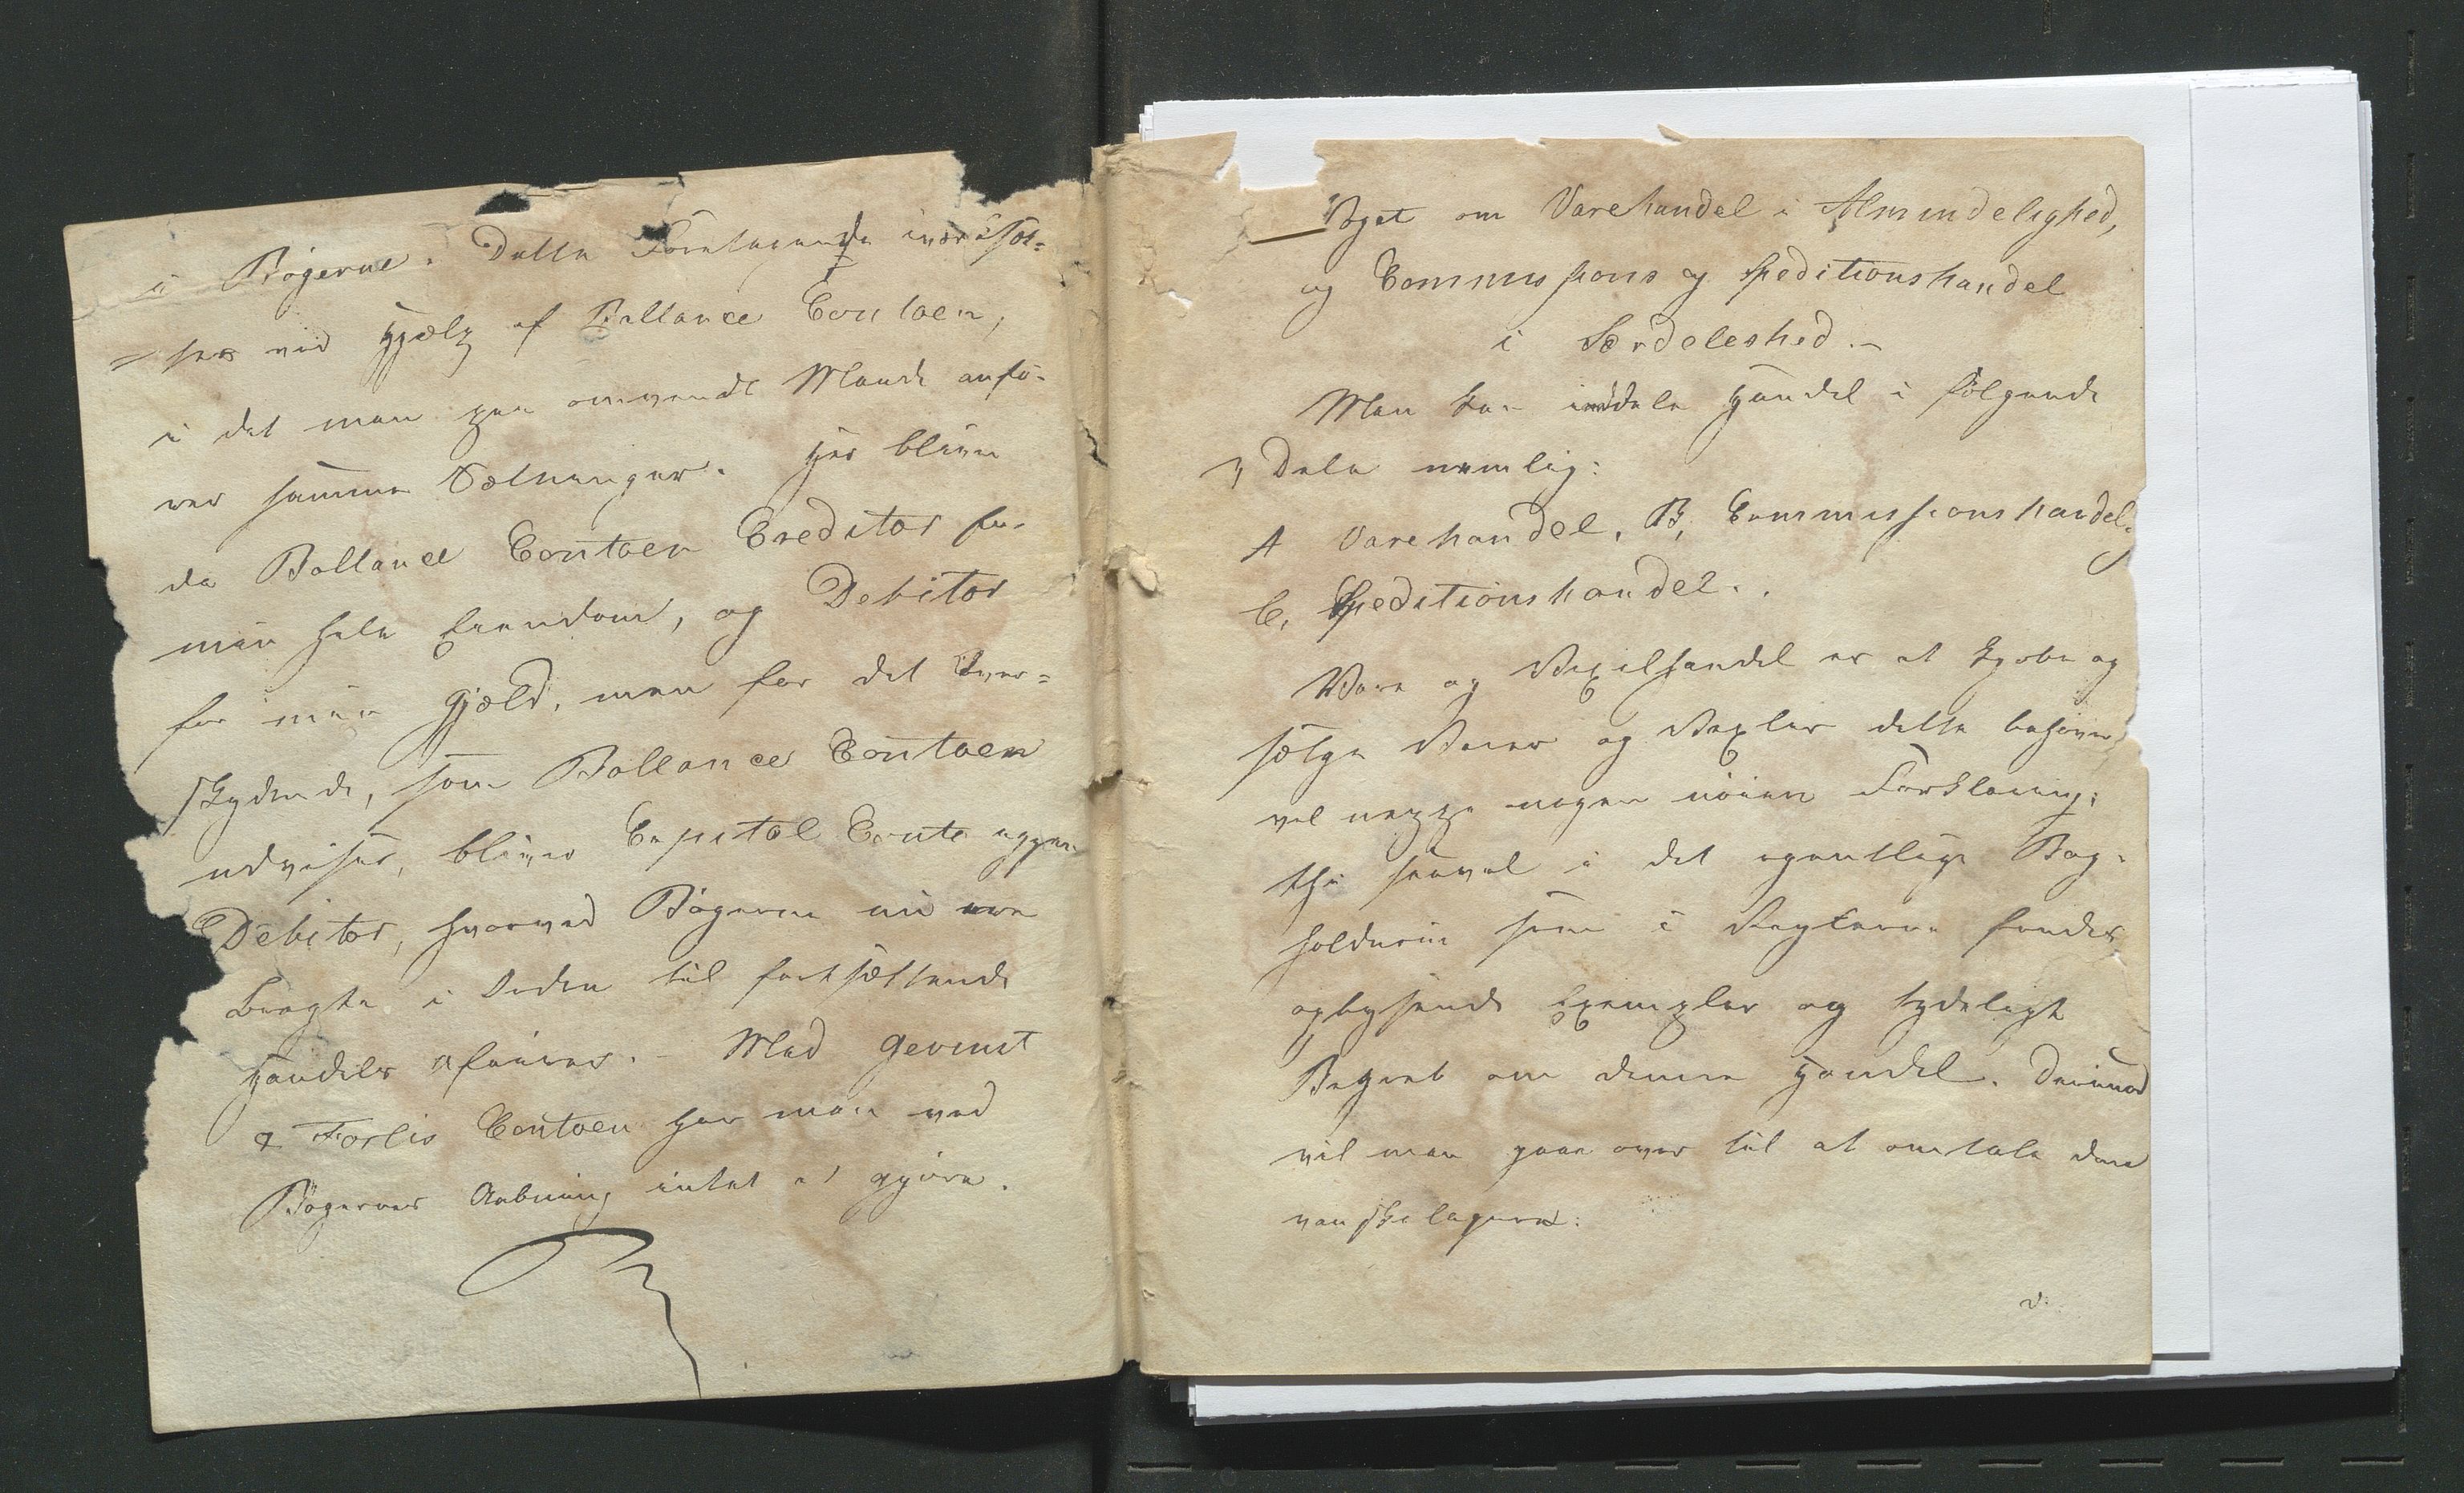 i Bøgerne. Dette Foretagende iværksæt-
= tes ved Hjælp af Ballance Contoen,
i det man paa omvendt Maade anfø-
rer samme Sætninger. Her bliver
da Ballance Contoen Creditor for
min hele Eiendom, og Debitor
for min Gjæld, men for det Over=
skydende, som Ballance Contoen
udviser, bliver Capital Conto igjen
Debitor, hvorved Bøgerne nu ere
bragte i Orden til fortsættende
Handels Afairer. - Med Gevinst
& Forlis Contoen har man ved
Bøgernes Aabning intet at gjøre.
Noget om Varehandel i Almindelighed,
og Commissions og Speditionshandel
i Særdeleshed.-
Man kan inddele Handel i følgende
3 Dele nemlig:
A Varehandel, B, Commissionshandel,
C, Speditionshandel.
Vare og Vexelhandel er at kjøbe og
sælge Varer og Vexler dette behøver
vel neppe nogen nøiere Forklaring;
thi saavel i det egentlige Bog-
holderie som i findes
oplysende Exempler og tydeligt
Begreb om denne Handel. Derimod
vil man gaae over til at omtale den
vanskeligere: